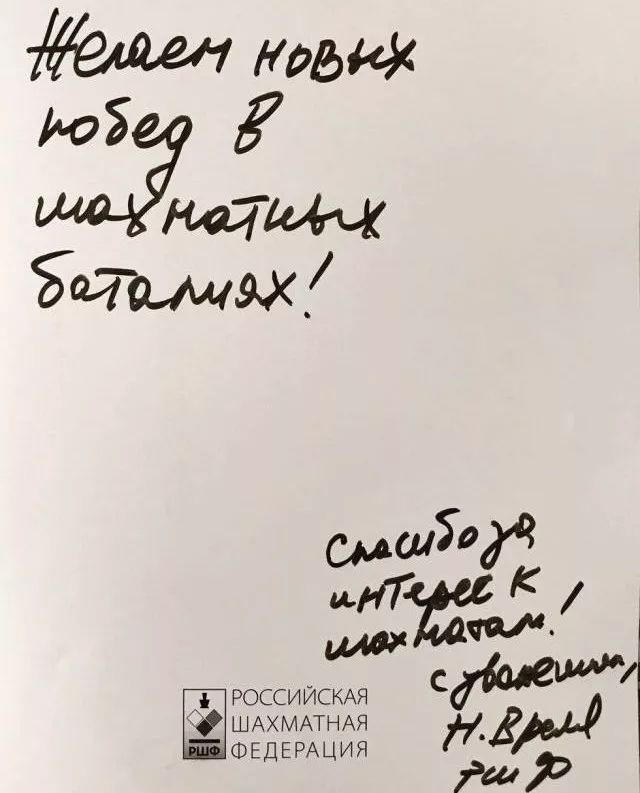 Желаем новых
побед в
шахматных
баталиях!
Спасибо за
интерес к
шахматам!
с уважением,
РОССИЙСКАЯ
ШАХМАТНАЯ
ФЕДЕРАЦИЯ
РШФ
Н.